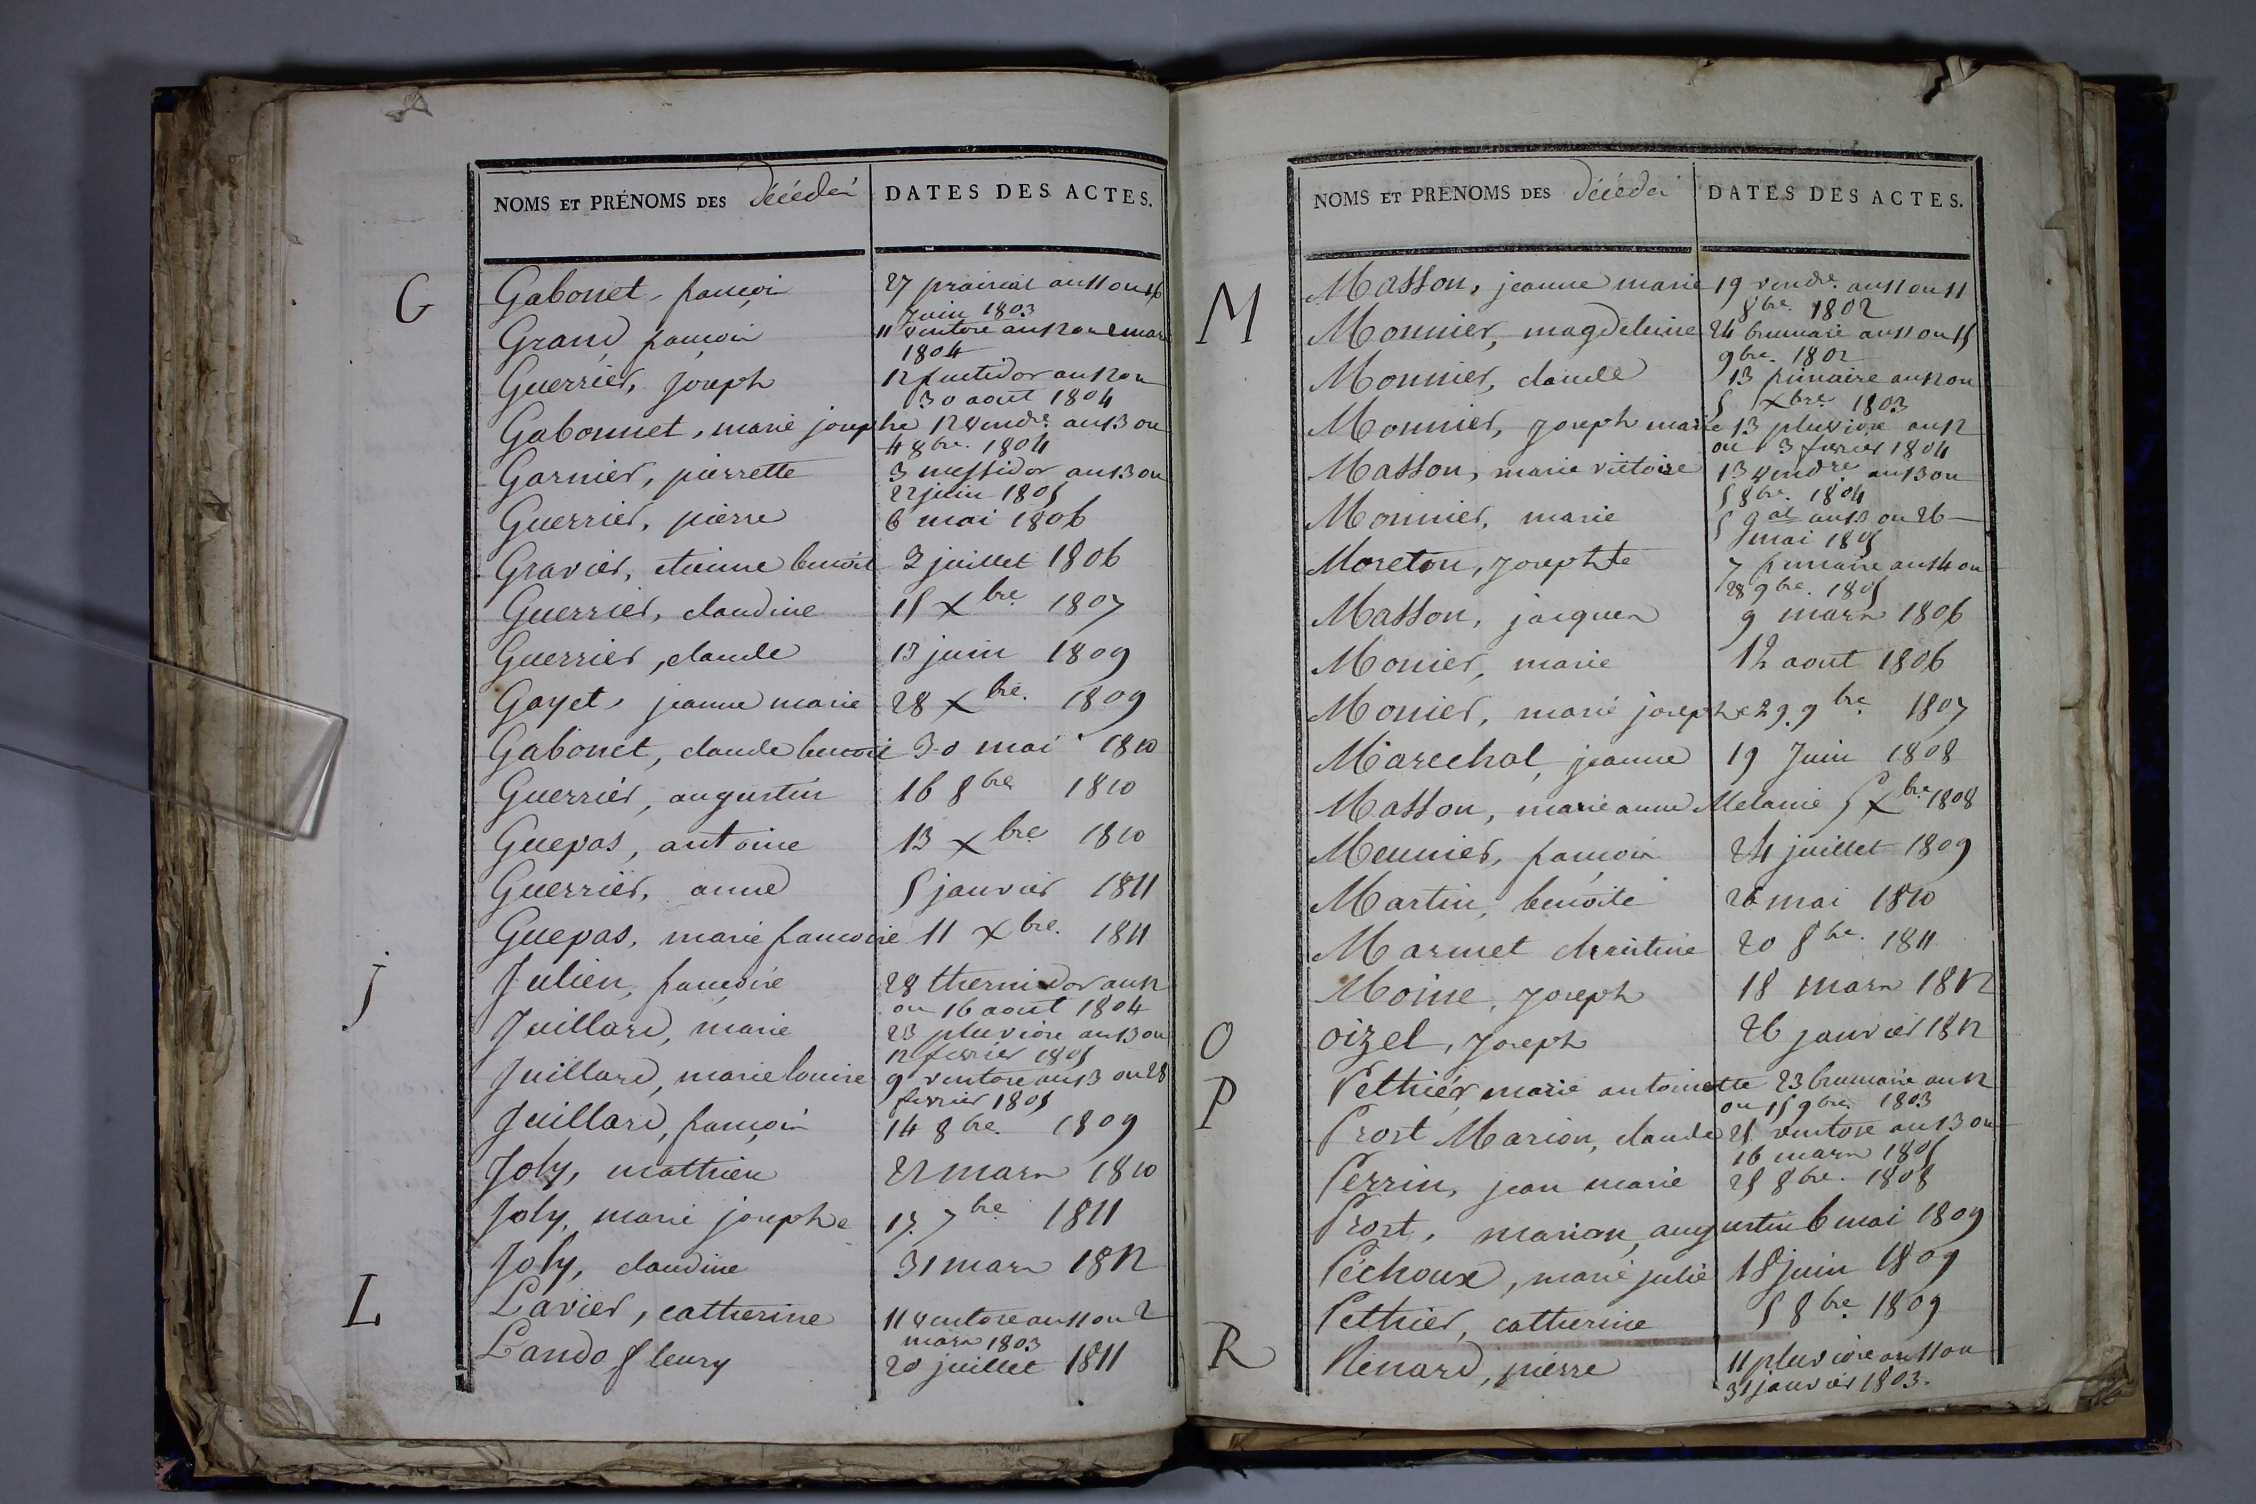 NOMS ET PRÉNOMS DES décédés DATES DES ACTES.
G Gabonet, françois 27 prairial an 11 ou 16
juin 1803
Grand, françois 11 ventose an 12 ou 2 mars
1804
Guerrier, Joseph 12 fructidor an 12 ou
30 aout 1804
Gabonnet, marie josephe 12 vendre. an 13 ou
4 8bre. 1804
Garnier, pierrette 3 messidor an 13 ou
22 juin 1805
Guerrier, pierre 6 mai 1806
Gravier, etienne benoit 3 juillet 1806
Guerrier, claudine 15 Xbre 1807
Guerrier, claude 13 juin 1809
Gayet, jeanne marie 28 Xbre. 1809
Gabonet, claude benoit 30 mai 1810
Guerrier, augustin 16 8bre 1810
Guepas, antoine 13 Xbre 1810
Guerrier, anne 5 janvier 1811
Guepas, marie francoise 11 Xbre. 1811
j Julien, françoise 28 thermidor an 12
ou 16 aout 1804
Juillard, marie 23 pluviose an 13 ou
12 fevrier 1805
Juillard, marie louise 9 ventose an 13 ou 28
fevrier 1805
Juillard, françois 14 8bre. 1809
Joly, mathieu 22 mars 1810
Joly, marie josephe 17 7bre 1811
Joly, claudine 31 mars 1812
L Lavier, catherine 11 ventose an 11 ou 2
mars 1803
Lando fleury 20 juillet 1811
NOMS ET PRÉNOMS DES décédés DATES DES ACTES.
M Masson, jeanne marie 19 vendre. an 11 ou 11
8bre. 1802
Monnier, magdeleine 24 brumaire an 11 ou 15
9bre. 1802
Monnier, claude 13 frimaire an 12 ou
5 Xbre. 1803
Monnier, Joseph marie 13 pluviose an 12
ou 3 fevrier 1804
Masson, marie victoire 13 vendre an 13 ou
5 8bre. 1804
Monnier, marie 5 9al an 13 ou 26
mai 1805
Moreton, Josephte 7 frimaire an 14 ou
28 9bre. 1805
Masson, jacques 9 mars 1806
Monier, marie 12 aout 1806
Monier, marie josephe 29. 9bre 1807
Marechal, jeanne 19 Juin 1808
Masson, marie anne Melanie 5 Xbre 1808
Meunier, françois 24 juillet 1809
Martin, benoite 26 mai 1810
Marmet christine 20 8bre. 1811
Moine, Joseph 18 mars 1812
O oizel, Joseph 26 janvier 1812
P Pethier, marie antoinette 23 brumaire an 12
ou 15 9bre. 1803
Prost Marion, claude 25 ventose an 13 ou
16 mars 1805
Perrin, jean marie 25 8bre. 1808
Prost, marion, augustin 6 mai 1809
Péchoux, marie julie 18 juin 1809
Pethier, catherine 5 8bre. 1809
R Renard, pierre 11 pluviose an 11 ou
31 janvier 1803.